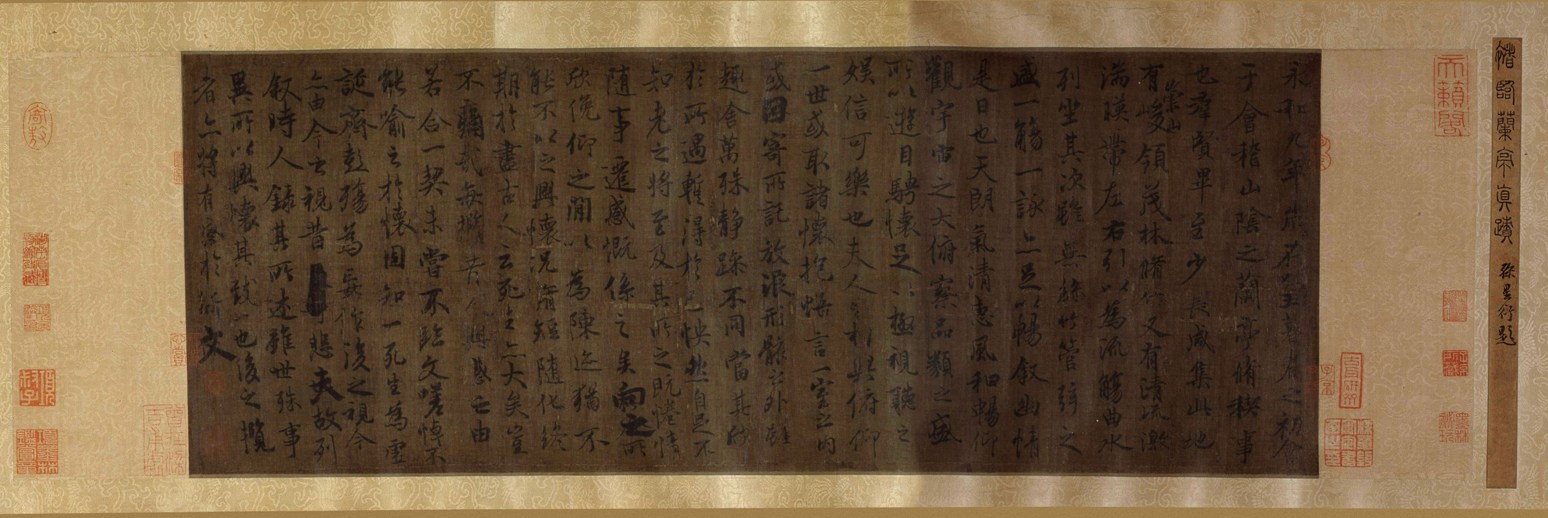 褚臨蘭亭真蹟 孫星衍題
永和九年歲在癸丑暮春之初會
于會稽山陰之蘭亭脩稧事
也群賢畢至少長咸集此地
有崇山峻領茂林脩竹又有清流激
湍暎帶左右引以為流觴曲水
列坐其次雖無絲竹管弦之
盛一觴一詠亦足以暢敘幽情
是日也天朗氣清惠風和暢仰
觀宇宙之大俯察品類之盛
所以遊目騁懷足以極視聽之
娛信可樂也夫人之相與俯仰
一世或取諸懷抱悟言一室之內
或因寄所託放浪形骸之外雖
趣舍萬殊靜躁不同當其欣
於所遇暫得於己怏然自足不
知老之將至及其所之既惓情
隨事遷感慨係之矣向之所
欣俛仰之間以為陳迹猶不
能不以之興懷況脩短隨化終
期於盡古人云死生亦大矣豈
不痛哉每攬昔人興感之由
若合一契未嘗不臨文嗟悼不
能喻之於懷固知一死生為虛
誕齊彭殤為妄作後之視今
亦由今之視昔悲夫故列
敘時人錄其所述雖世殊事
異所以興懷其致一也後之攬
者亦將有感於斯文
天籟閣